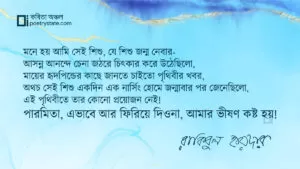 কবিতা অঞ্চল
poetrystate.com
মনে হয় আমি সেই শিশু, যে শিশু জন্ম নেবার-
আসন্ন আনন্দে চেনা জঠরে চিৎকার করে উঠেছিলো,
মায়ের হৃদপিন্ডের কাছে জানতে চাইতো পৃথিবীর খবর,
অথচ সেই শিশু একদিন এক নার্সিং হোমে জন্মাবার পর জেনেছিলো,
এই পৃথিবীতে তার কোনো প্রয়োজন নেই!
পারমিতা, এভাবে আর ফিরিয়ে দিওনা, আমার ভীষণ কষ্ট হয়!